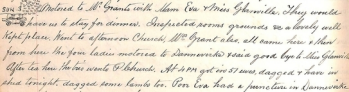 SUN 3 Motored to Mr Grants with Mam Eva & Miss Glanville. They would
have us stay for dinner. Inspected rooms grounds &c a lovely well
kept place. Went to afternoon Church, Mr Grant also, all came here & then
from here the four ladies motored to Dannevirke & said good bye to Miss Glanville
After tea here the two went to Church. At 4 PM got in 51 ewes, dagged & have in
shed tonight, dagged some lambs too. Poor Eva had a puncture in Dannevirke